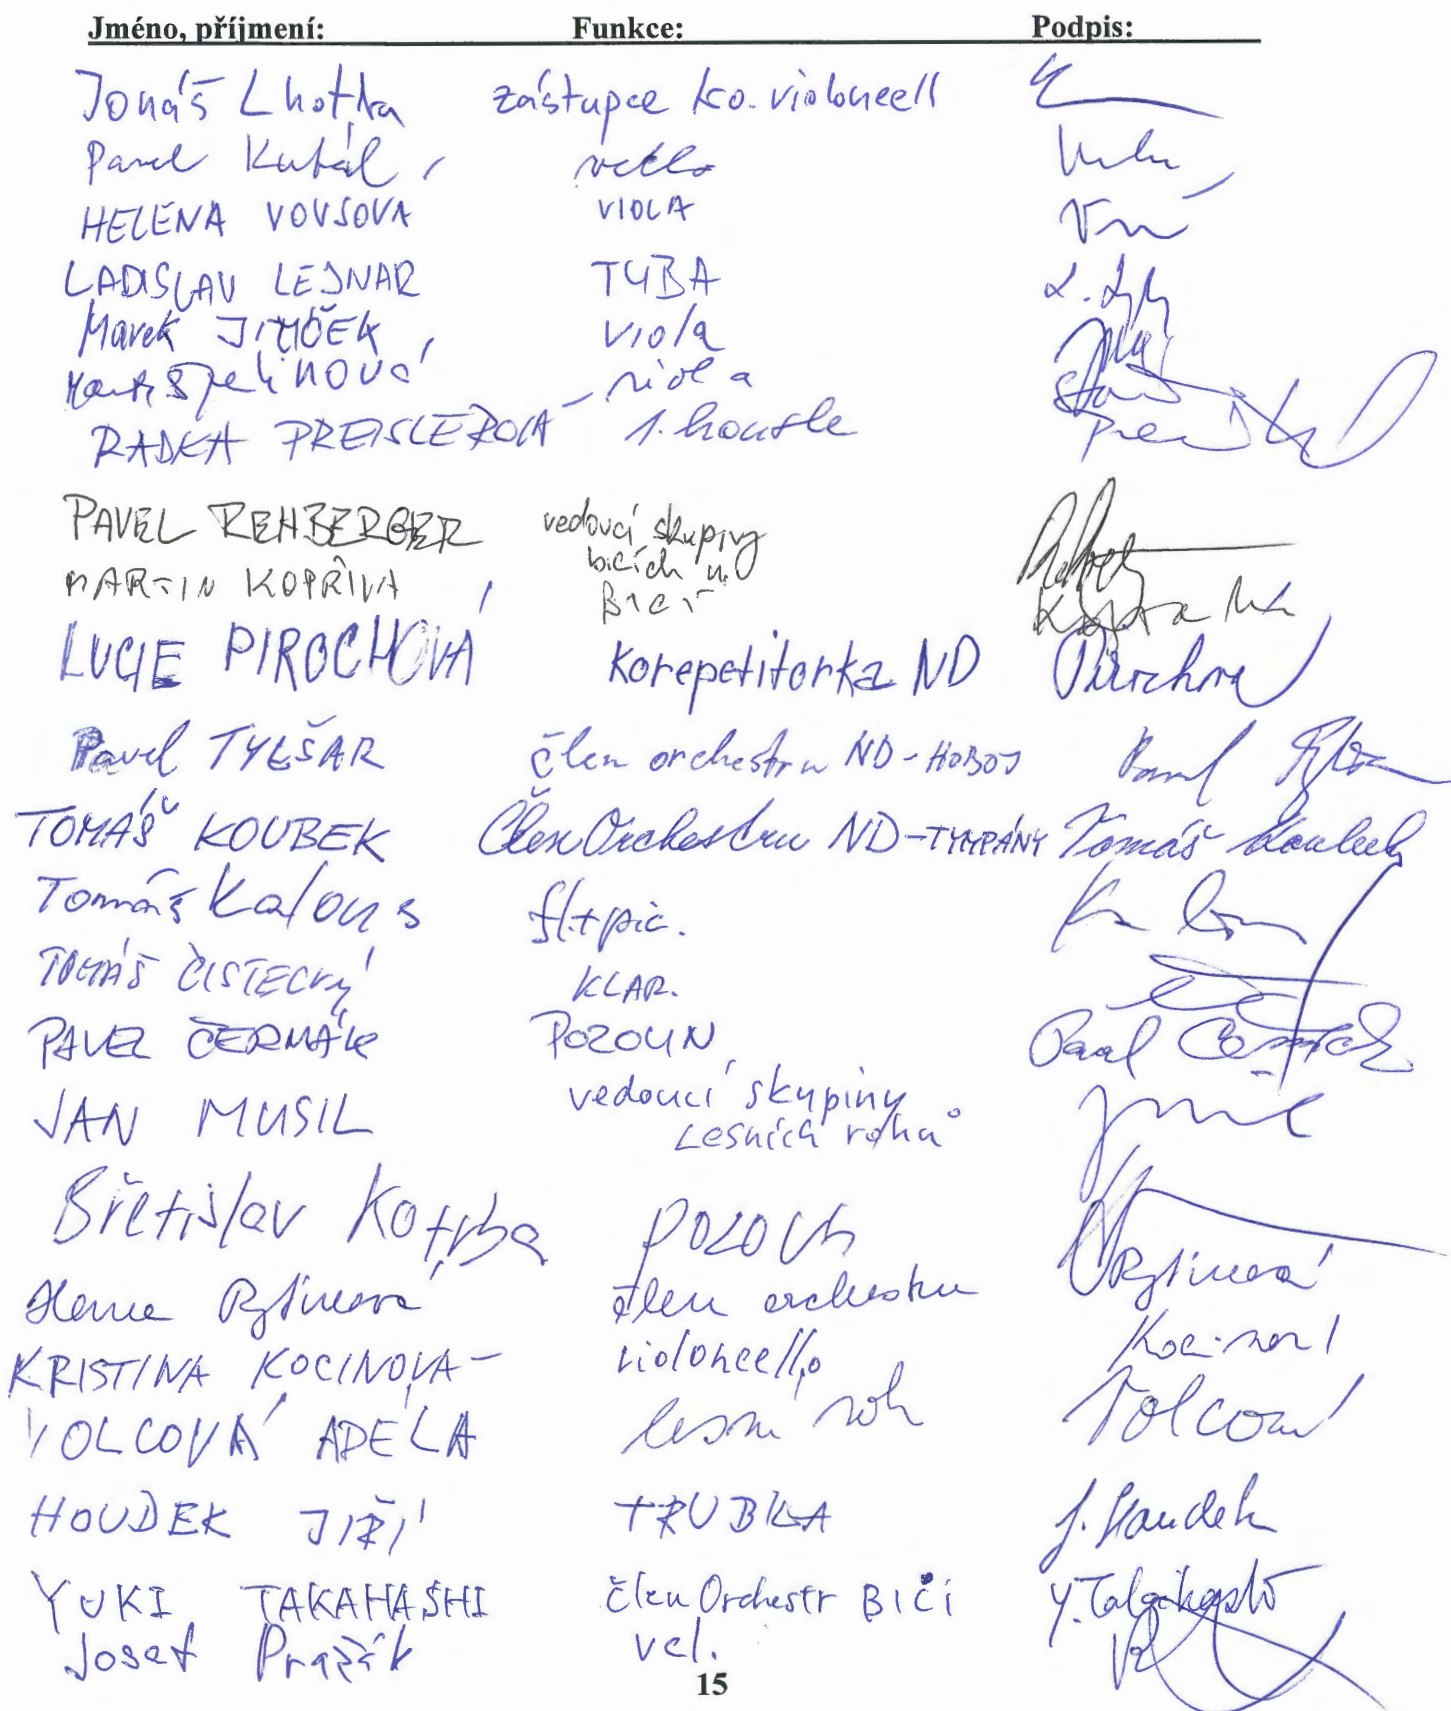 Jméno, příjmení: Funkce: Podpis:
Jonáš Lhotka zástupce ko. violoncell
Pavel Kubál, vcllo
HELENA VOVSOVA VIOLA
LADISLAV LEJNAR TUBA L.
Marek JIMČEK, viola
viola
RADKA PREISLEROVÁ 1. housle
PAVEL REHBERGER vedoucí skupiny
bicích n.
MARTIN KOPŘIVA BICÍ
LUCIE PIROCHOVÁ Korepetitorka ND Pirochová
Pavel TYLŠAR člen orchestru ND - HOBOJ Pavel
TOMÁŠ KOUBEK Člen Orchestru ND - TYMPÁNY Tomáš Koubek
Tomáš Kalous fl.+pic.
TOMÁŠ ČISTECKÝ KLAR.
PAVEL ČERMÁK POZOUN Pavel Čermák
JAN MUSIL vedoucí skupiny
Lesních rohů
Břetislav Kotrba POZOUN
Rytinová člen orchestru Rytinová
KRISTINA KOCINOVÁ - violoncello Kocinová
VOLCOVÁ ADÉLA lesní roh Volcová
HOUDEK JIŘÍ TRUBKA J. Houdek
YUKI TAKAHASHI člen Orchestr BICÍ Y. Takahashi
Josef Pražák vcl.
15